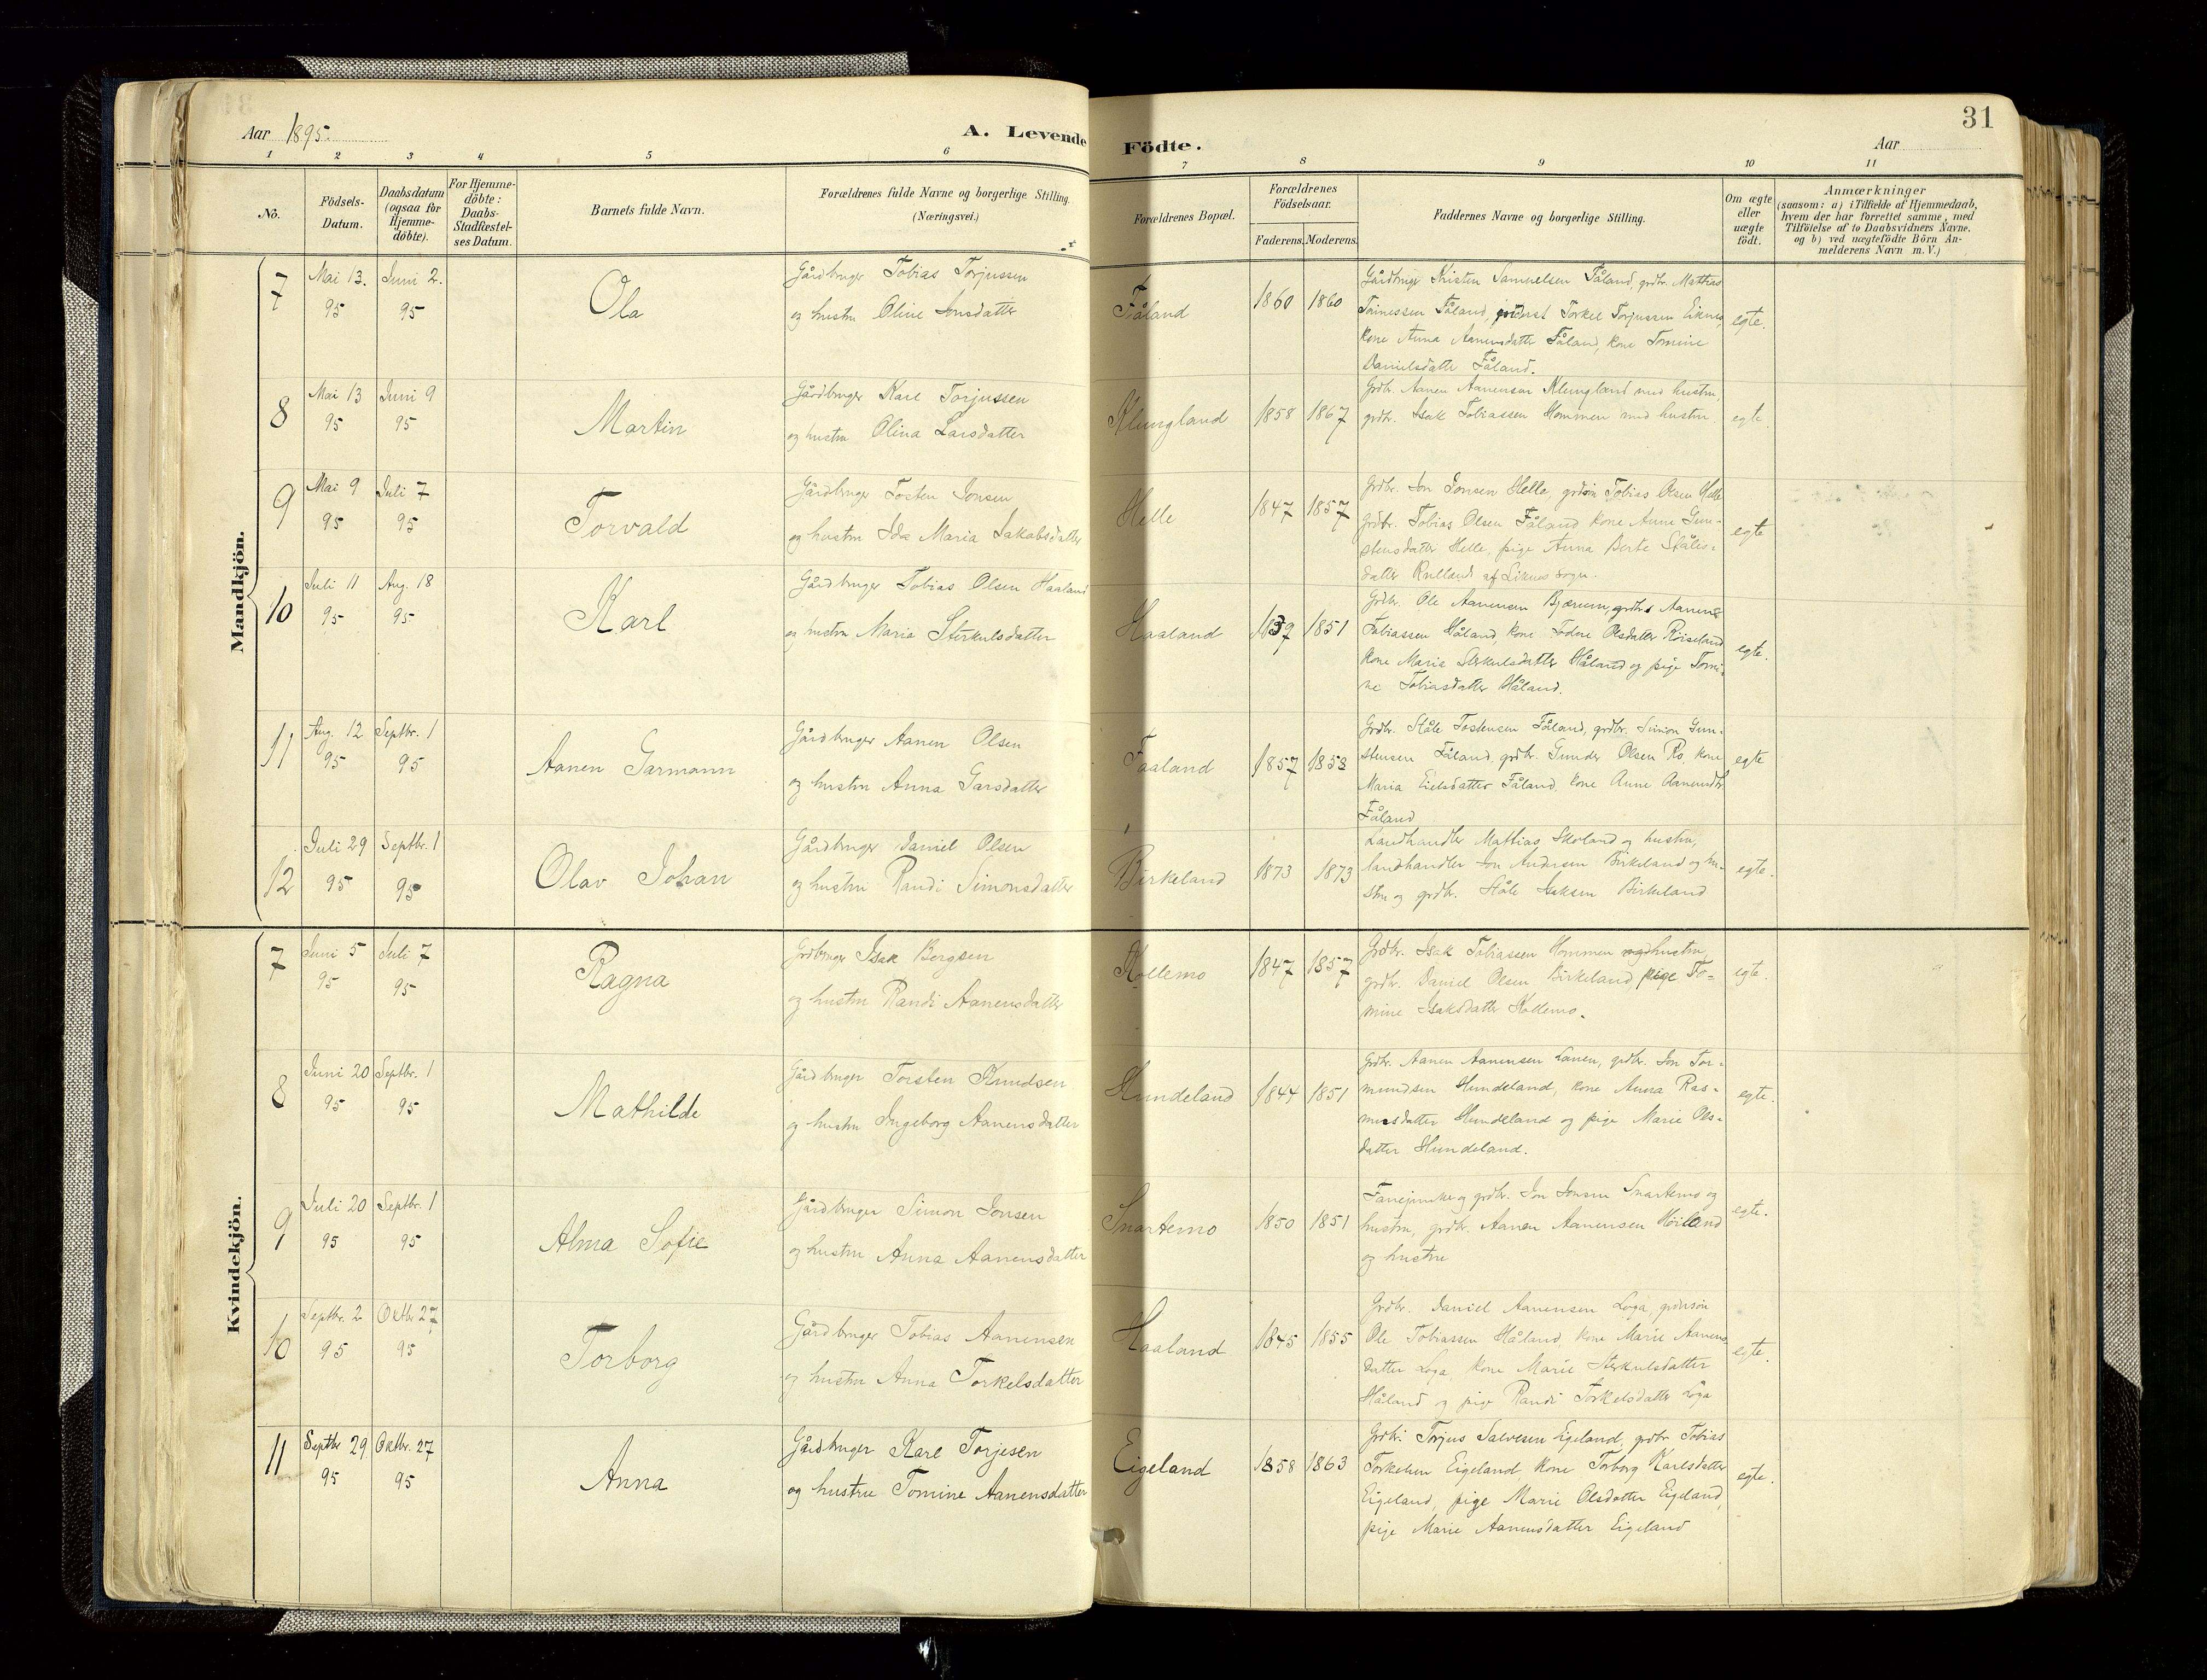 31
Aar 1895.
A. Levende Födte.
Aar
1 2 3 4 5 6 7 8 9 10 11
No.
Födsels-Datum.
Daabsdatum (ogsaa for Hjemme-döbte).
For Hjemme-döbte: Daabs-Stadfæstel-ses Datum.
Barnets fulde Navn.
Forældrenes fulde Navne og borgerlige Stilling. (Næringsvei.)
Forældrenes Bopæl.
Forældrenes Födselsaar.
Faderens. Moderens.
Faddernes Navne og borgerlige Stilling.
Om ægte eller uægte födt.
Anmærkninger
(saasom: a) i Tilfælde af Hjemmedaab,
hvem der har forrettet samme, med
Tilföielse af to Daabsvidners Navne.
og b) ved uægtefödte Börn An-
melderens Navn m. V.)
Mandkjön.
7 Mai 13. 95 Juni 2. 95 Ola
Gårdbruger Tobias Torjussen
og hustru Oline Jonsdatter
Fåland 1860 1860
Gårdbruger Kristen Samuelsen Fåland, grdbr. Mathias
Tønnessen Fåland, Torkel Torjussen
kone Anna Aanensdatter Fåland, kone Tomine
Danielsdatter Fåland.
egte.
8 Mai 13 95 Juni 9 95 Martin
Gårdbruger Karl Torjussen
og hustru Olina Larsdatter
Klungland 1858 1867
Grdbr. Aanen Aanensen Klungland med hustru,
grdbr. Isak Tobiassen Hommen med hustru.
egte.
9 Mai 9 95 Juli 7 95 Torvald
Gårdbruger Tosten Jonsen
og hustru Ida Maria Jakobsdatter
Helle 1847 1857
Grdbr. Jon Jonsen Helle, grdsøn Tobias Olsen Helle
Grdbr. Tobias Olsen Fåland kone Anne Gun-
stensdatter Helle, pige Anna Berte Ståles-
datter Rulland af Liknes sogn.
egte
10 Juli 11 95 Aug. 18 95 Karl
Gårdbruger Tobias Olsen Haaland
og hustru Maria Sterkulsdatter
Haaland 1839 1851
Grdbr. Ole Aanensen Bjærum, grdbrs Aanen
Tobiassen Håland, kone Todne Olsdatter Røiseland
kone Marie Sterkulsdatter Håland og pige Tomi-
ne Tobiasdatter Håland.
egte.
11 Aug. 12 95 Septbr. 1 95 Aanen Garmann
Gårdbruger Aanen Olsen
og hustru Anna Garsdatter
Faaland 1857 1853
Grdbr. Ståle Tostensen Fåland, grdbr. Simon Gun-
stensen Fåland, grdbr. Gunder Olsen Ro, kone
Maria Eielsdatter Fåland, kone Anne Aanensdtr
Fåland
egte
12 Juli 29 95 Septbr. 1 95 Olav Johan
Gårdbruger Daniel Olsen
og hustru Randi Simonsdatter
Birkeland 1873 1873
Landhandler Mathias Skoland og hustru,
landhandler Jon Andersen Birkeland og hu-
stru og grdbr. Ståle Isaksen Birkeland
egte.
Kvindekjön.
7 Juni 5 95 Juli 7 95 Ragna
Grdbruger Isak Bergsen
og hustru Randi Aanensdatter
Kollemo 1847 1857
Grdbr. Isak Tobiassen Hommen og hustru,
grdbr. Daniel Olsen Birkeland pige To-
mine Isaksdatter Kollemo.
egte.
8 Juni 20 95 Septbr. 1 95 Mathilde
Gårdbruger Torsten Knudsen
og hustru Ingeborg Aanensdatter
Hundeland 1844 1851
Grdbr. Aanen Aanensen Lanen, grdbr. Jon Tor-
mundsen Hundeland, kone Anna Ras-
musdatter Hundeland og pige Marie Ols-
datter Hundeland.
egte.
9 Juli 20 95 Septbr. 1 95 Alma Sofie
Gårdbruger Simon Jonsen
og hustru Anna Aanensdatter
Snartemo 1850 1851
Fanejunker og grdbr. Jon Jonsen Snartemo og
hustru, grdbr. Aanen Aanensen Høiland
og hustru
egte.
10 Septbr. 2 95 Oktbr 27 95 Torborg
Gårdbruger Tobias Aanensen
og hustru Anna Torkelsdatter
Haaland 1845 1855
Grdbr. Daniel Aanensen Løga, grdbrsøn
Ole Tobiassen Håland, kone Marie Aanens-
datter Løga, kone Marie Sterkulsdatter
Håland og pige Randi Torkelsdatter Løga
egte.
11 Septbr 29 95 Oktbr. 27 95 Anna
Gårdbruger Karl Torjesen
og hustru Tomine Aanensdatter
Eigeland 1858 1863
Grdbr. Torjus Salvesen Eigeland, grdbr. Tobias
Torkelsen Eigeland, kone Torborg Karlsdatter
Eigeland, pige Marie Olsdatter Eigeland,
pige Marie Aanensdatter Eigeland
egte.